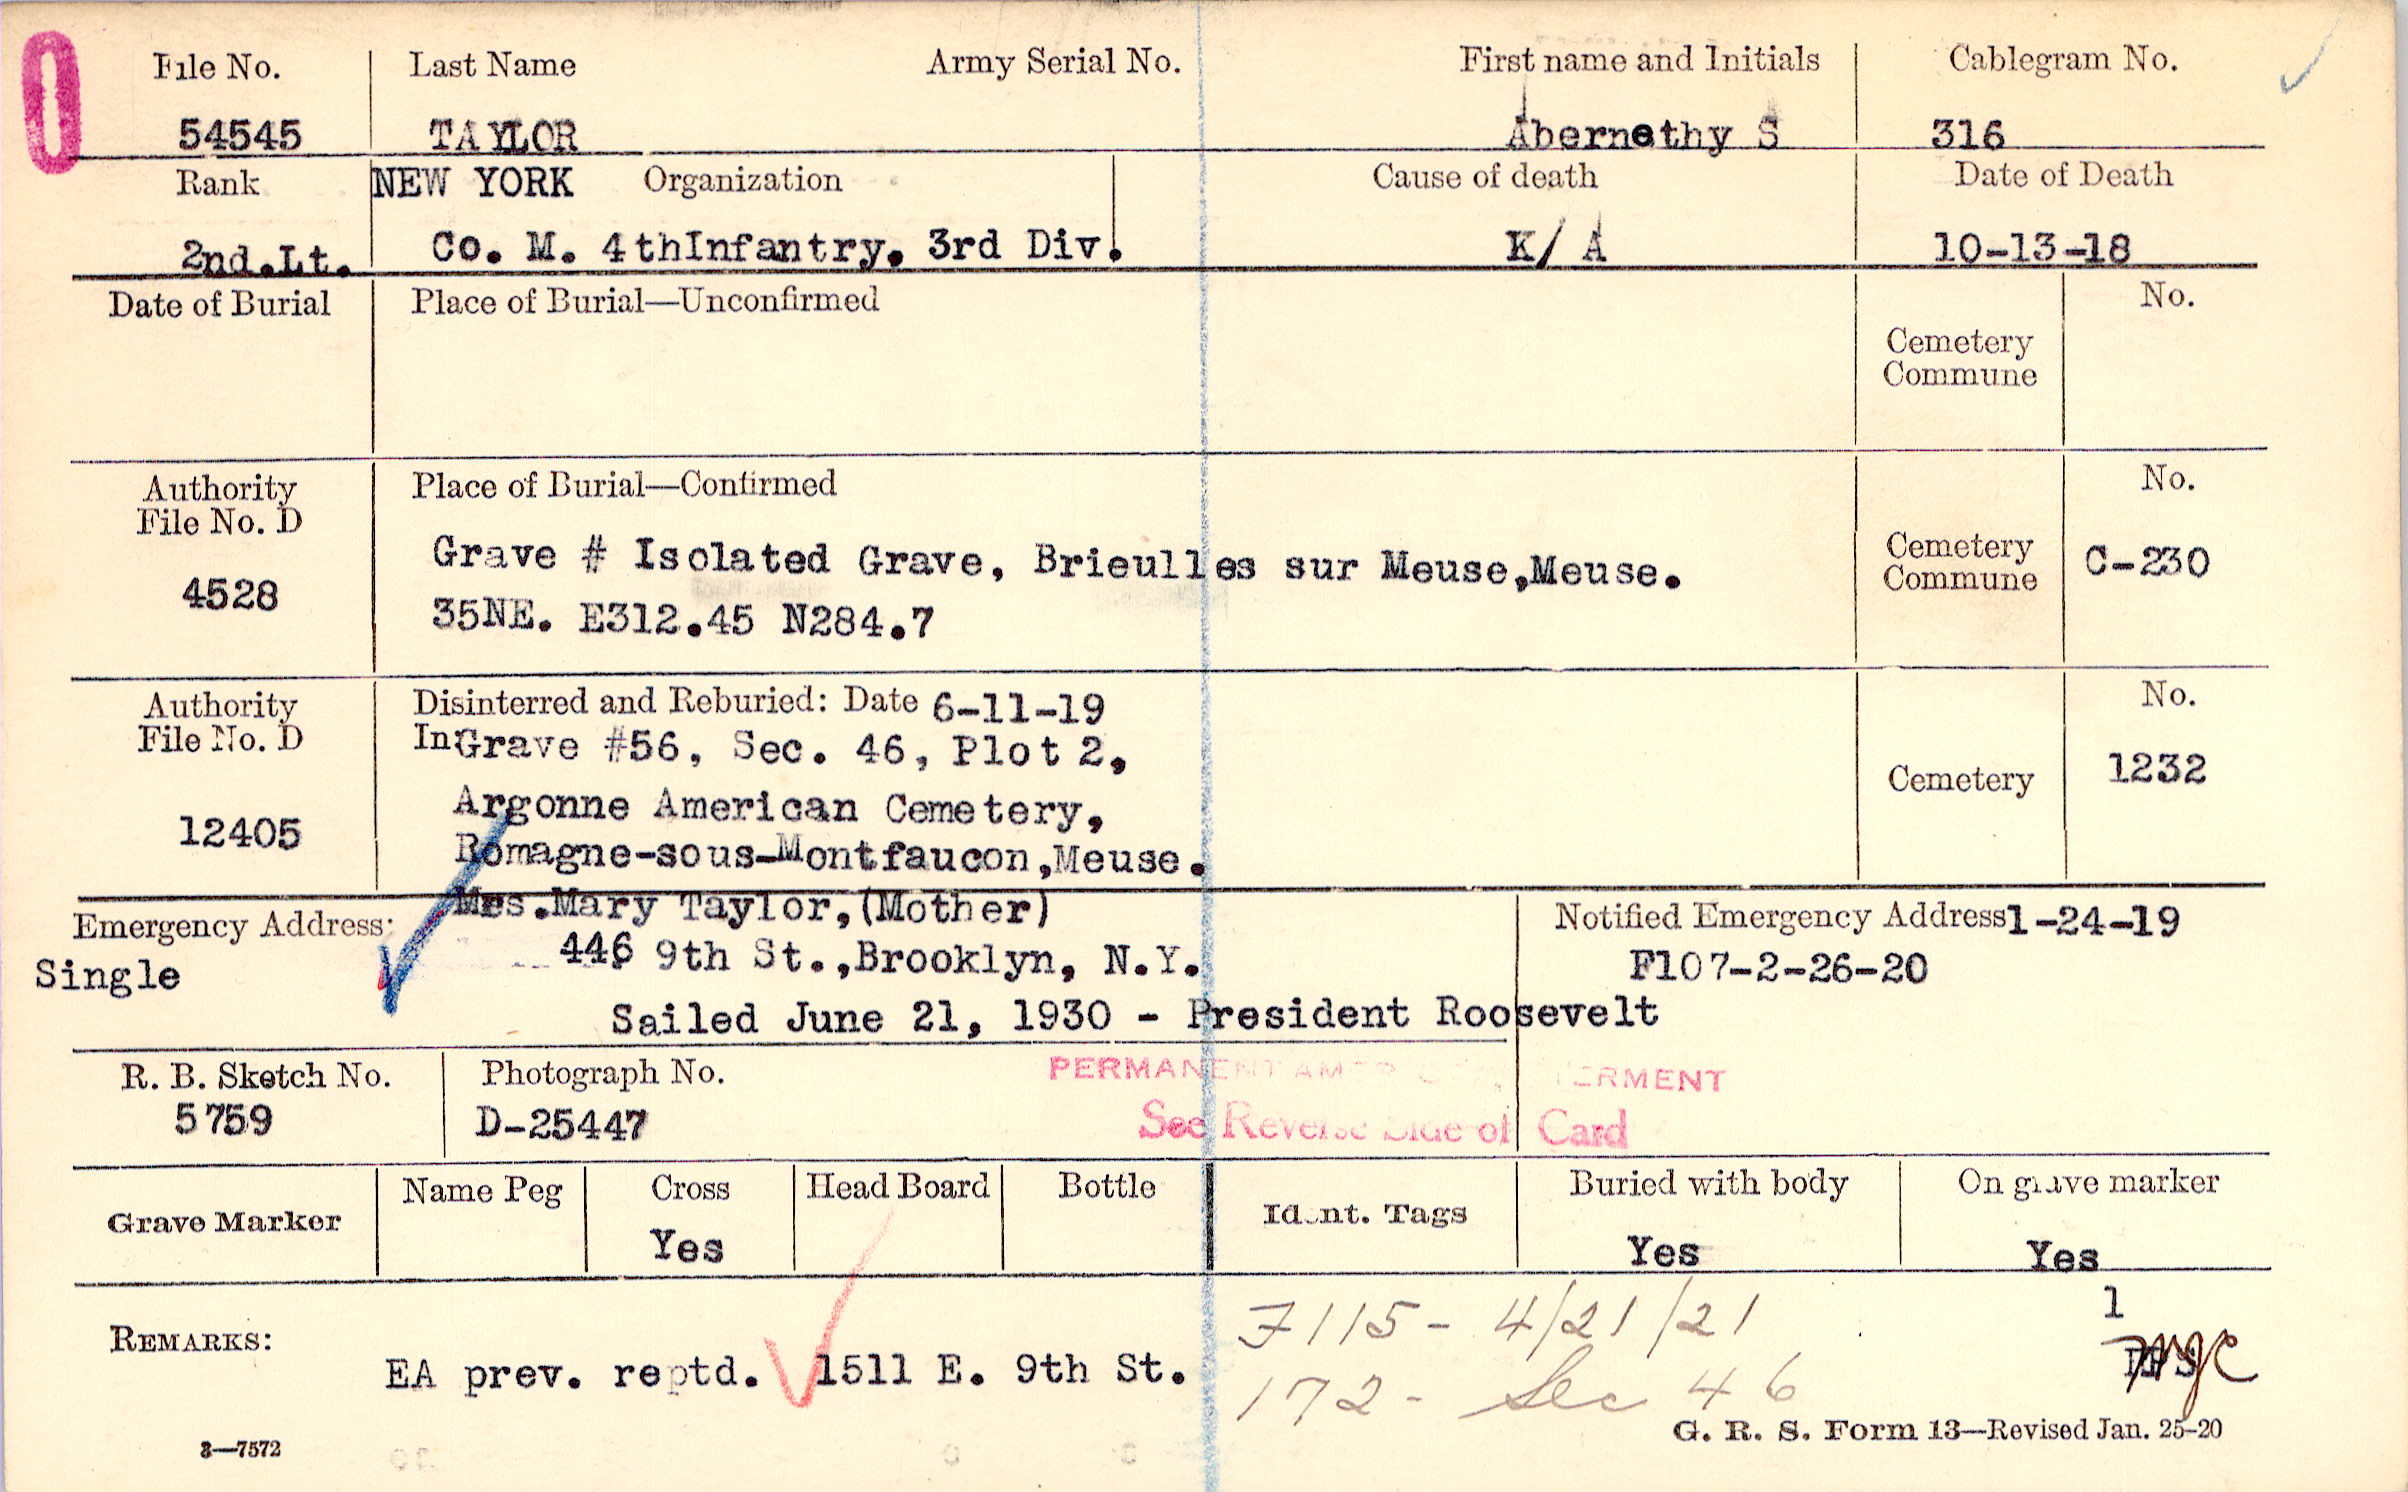 File No. Last Name Army Serial No. First name and Initials Cablegram No.
54545 TAYLOR Abernethy S 316
Rank NEW YORK Organization Cause of death Date of Death
2nd.Lt. Co. M. 4thInfantry. 3rd Div. K/A 10-13-18
Date of Burial Place of Burial—Unconfirmed No.
Cemetery
Commune
Authority Place of Burial—Confirmed No.
File No. D
Grave # Isolated Grave, Brieulles sur Meuse,Meuse. Cemetery C-230
4528 Commune
35NE. E312.45 N284.7
Authority Disinterred and Reburied: Date 6-11-19 No.
File No. D InGrave #56, Sec. 46, Plot 2,
Cemetery 1232
12405 Argonne American Cemetery,
Romagne-sous-Montfaucon,Meuse.
Emergency Address: Mrs.Mary Taylor,(Mother) Notified Emergency Address 1-24-19
Single 446 9th St.,Brooklyn, N.Y. F107-2-26-20
Sailed June 21, 1930 - President Roosevelt
R. B. Sketch No. Photograph No. PERMANENT
5759 D-25447 See Reverse Side of Card
Grave Marker Name Peg Cross Head Board Bottle Ident. Tags Buried with body On grave marker
Yes Yes Yes
7115- 4/21/21 1
REMARKS: EA prev. reptd. 1511 E. 9th St.
172- Sec 46
3—7572 G. R. S. Form 13—Revised Jan. 25-20